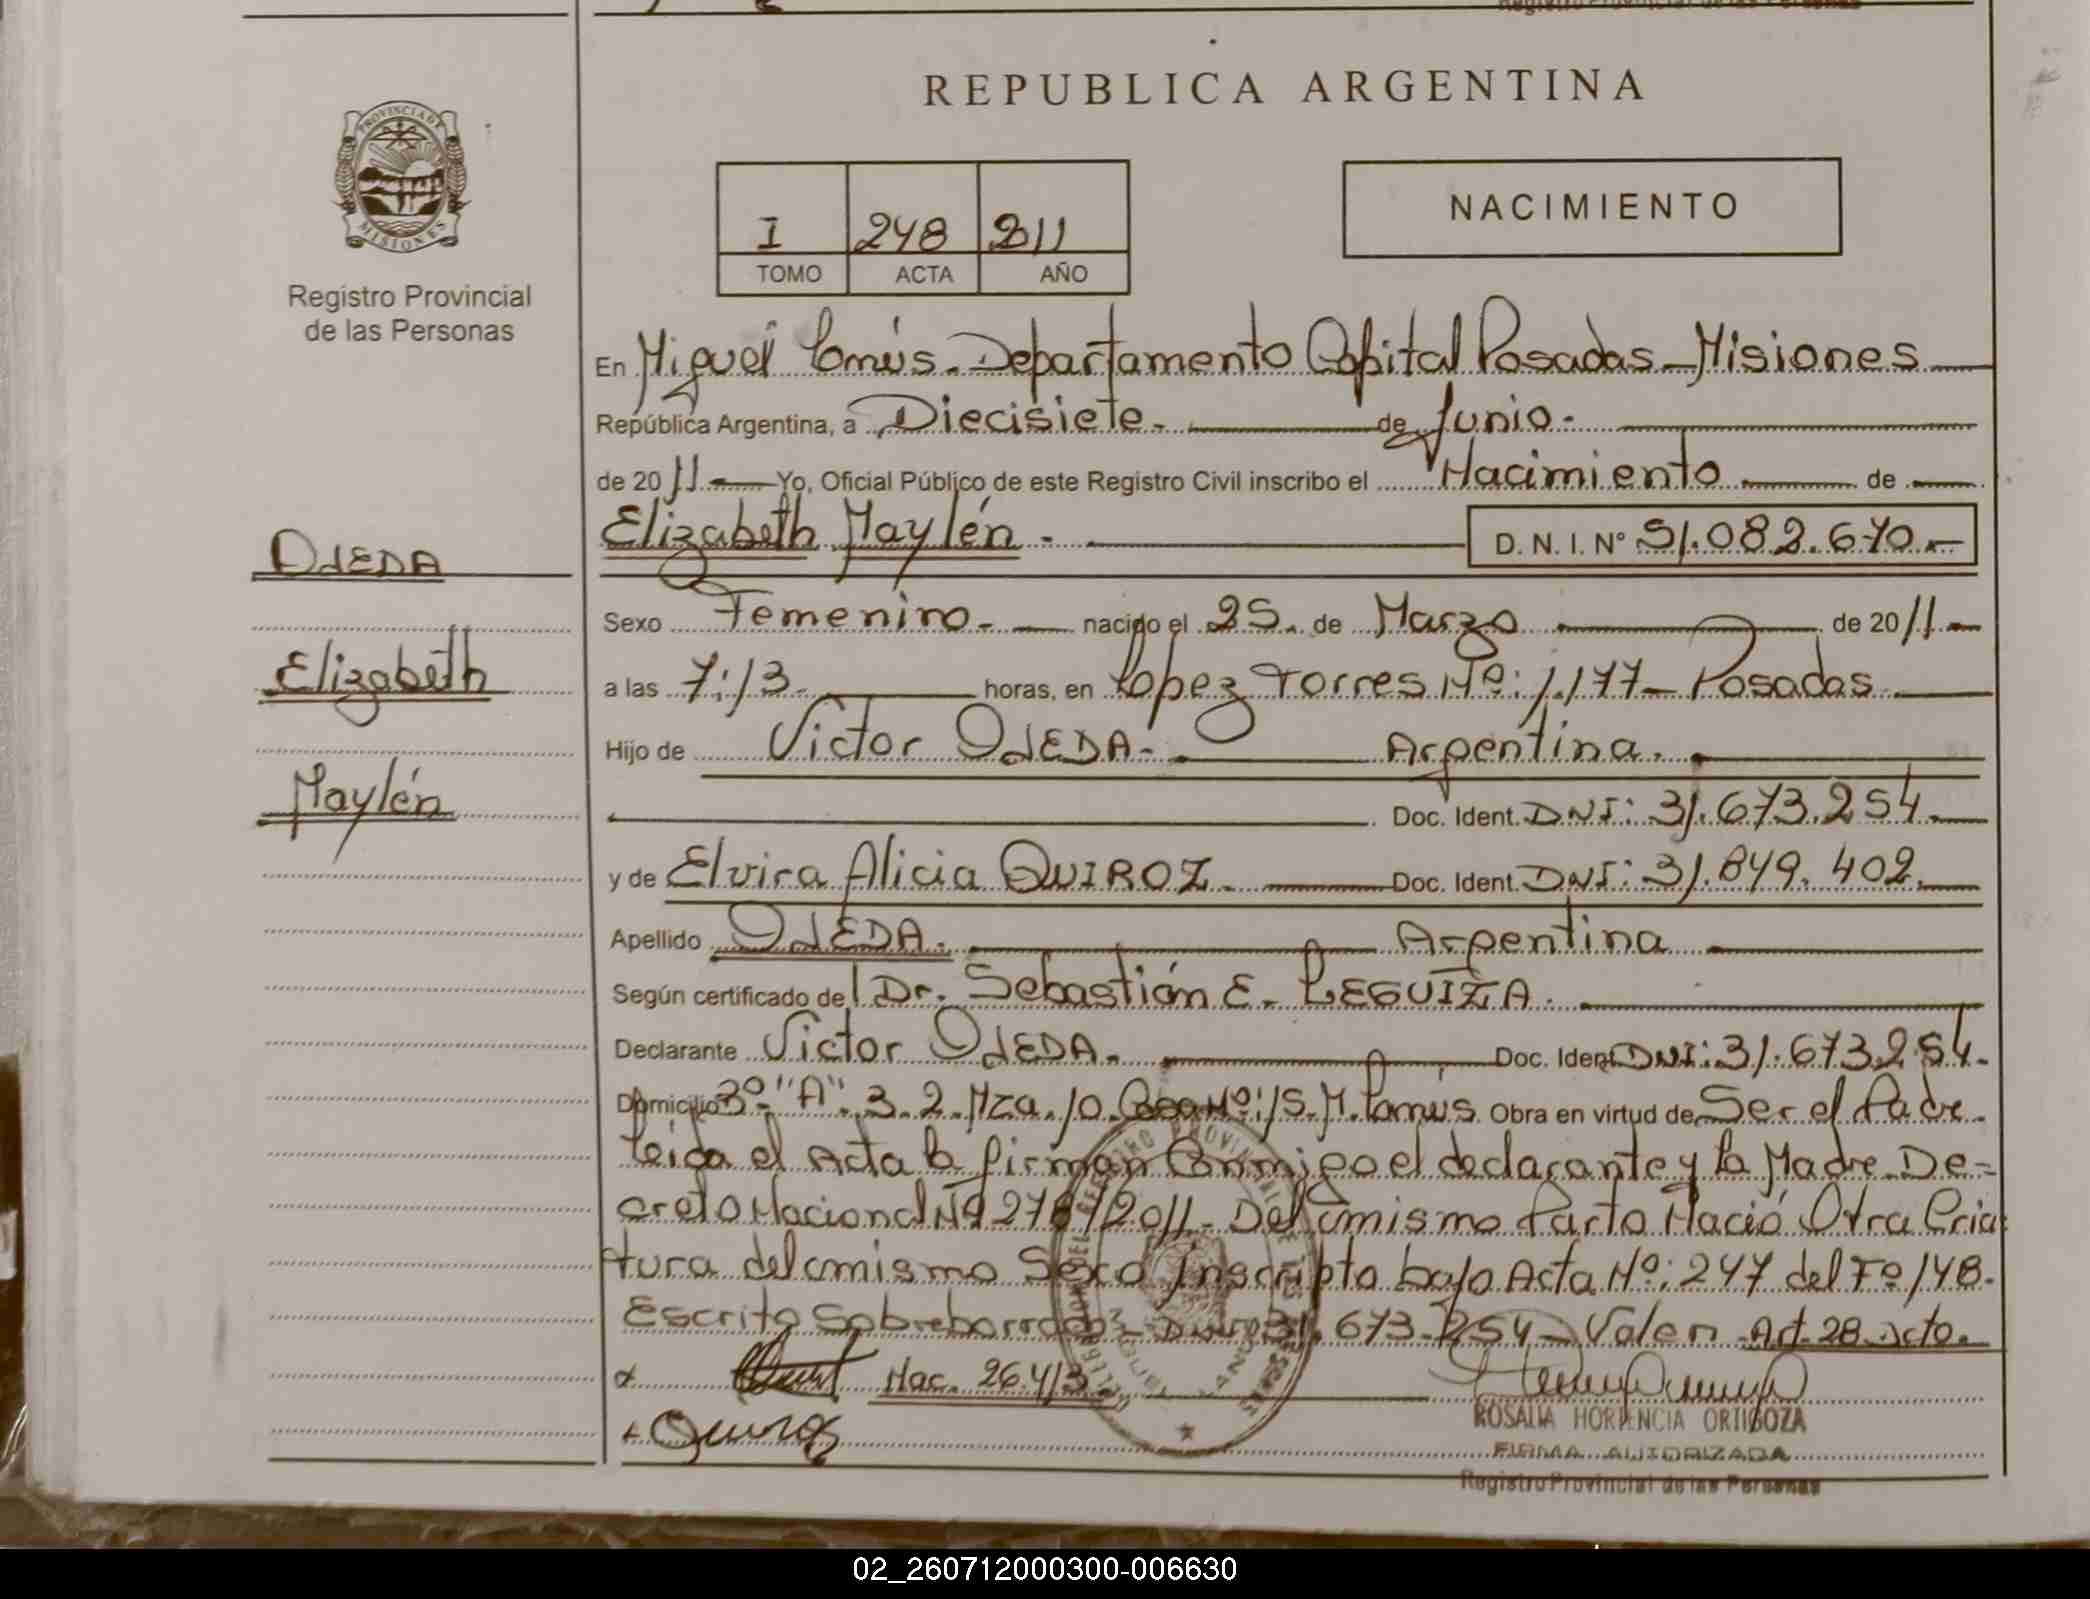 REPUBLICA ARGENTINA
PROVINCIA DE
MISIONES
Registro Provincial
de las Personas
NACIMIENTO
I 248 2011
TOMO ACTA AÑO
En Miguel Lanús. Departamento Capital Posadas - Misiones
República Argentina, a Diecisiete. de Junio.
de 2011 Yo, Oficial Público de este Registro Civil inscribo el Nacimiento de
Elizabeth Maylén - D. N. I. N° 51.082.670.-
OJEDA
Elizabeth
Maylén
Sexo Femenino.- nacido el 25. de Marzo de 2011.-
a las 7:13 horas, en López Torres Nº: 1.177- Posadas
Hijo de Victor OJEDA.- Argentina.
Doc. Ident. DNI: 31.673.254.
y de Elvira Alicia QUIROZ. Doc. Ident. DNI: 31.849.402.
Apellido OJEDA. Argentina
Según certificado del Dr. Sebastián E. LEGUIZA.
Declarante Victor OJEDA. Doc. Ident DNI: 31.673.254.
Domicilio 3º "A". 3.2. Mza. 10. Casa Nº: 15. M. Lanús. Obra en virtud de Ser el Padre.
Leída el Acta la firman Conmigo el declarante y la Madre. De-
creto Nacional Nº 278/2011. Del mismo Parto Nació Otra Cria
tura del mismo Sexo inscripta bajo Acta Nº: 247 del Fº 148.
Escrito Sobreborrado: 31.673.254 - Valen. Art. 28
Nac. 26.413.
Quiroz
ROSALIA HORTENCIA ORTIGOZA
FIRMA AUTORIZADA
Registro Provincial de las Personas
02_260712000300-006630